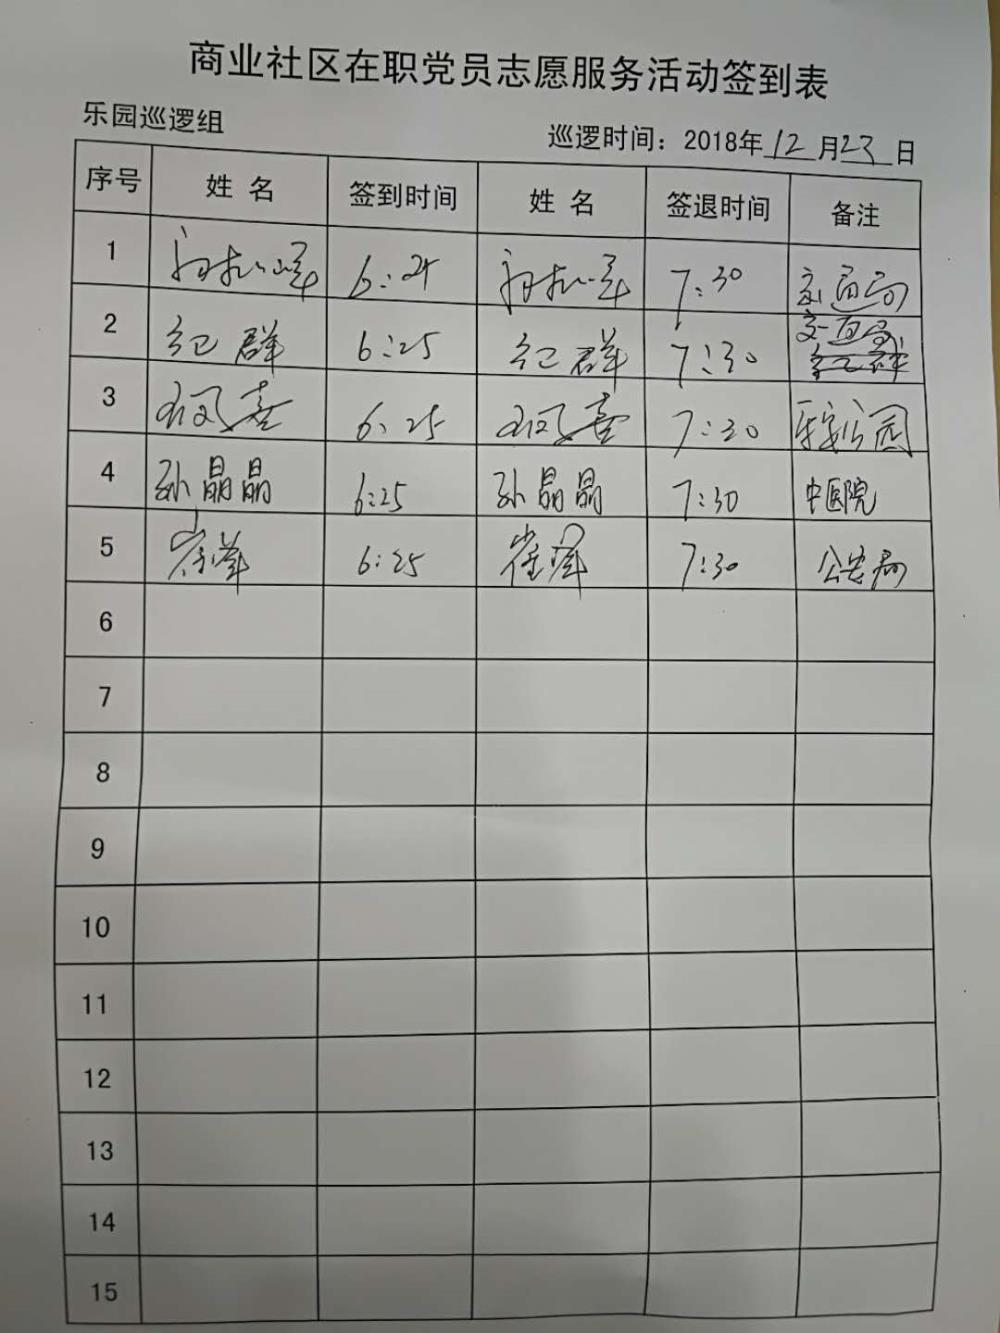 商业社区在职党员志愿服务活动签到表
乐园巡逻组 巡逻时间：2018年12月23日
序号 姓名 签到时间 姓名 签退时间 备注
1 6:24 7:30 交通局
2 纪群 6:25 纪群 7:30 交通局
3 6:25 7:30 公园
4 孙晶晶 6:25 孙晶晶 7:30 中医院
5 崔峰 6:25 崔峰 7:30 公安局
6
7
8
9
10
11
12
13
14
15